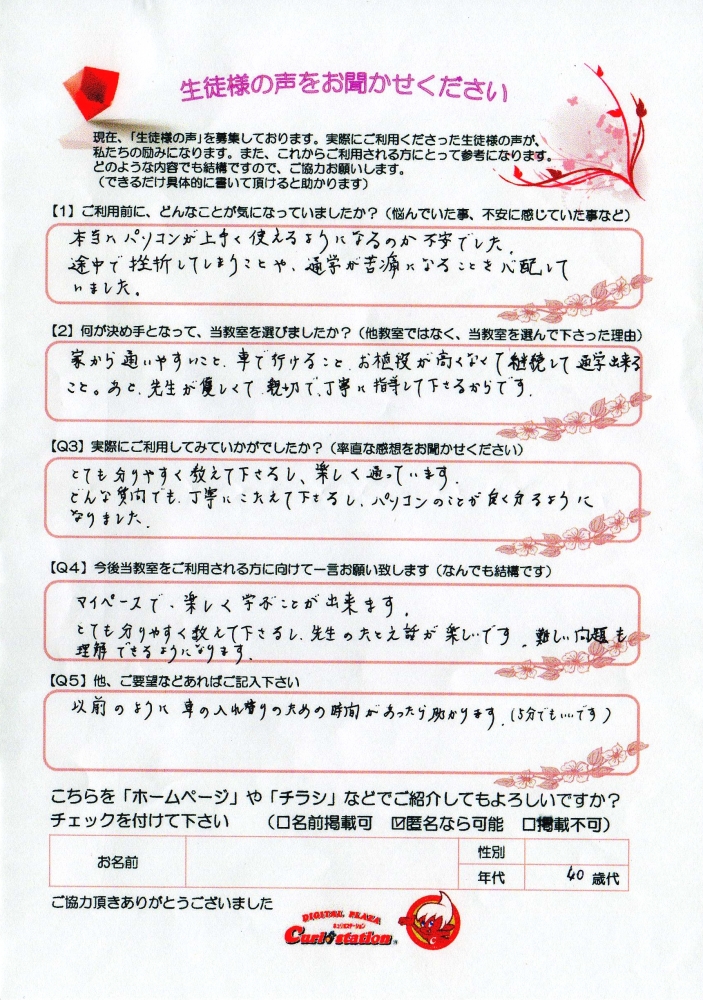 生徒様の声をお聞かせください
現在、「生徒様の声」を募集しております。実際にご利用くださった生徒様の声が、
私たちの励みになります。また、これからご利用される方にとって参考になります。
どのような内容でも結構ですので、ご協力お願いします。
（できるだけ具体的に書いて頂けると助かります）
【1】ご利用前に、どんなことが気になっていましたか？（悩んでいた事、不安に感じていた事など）
本当にパソコンが上手く使えるようになるのか不安でした。
途中で挫折してしまうことや、通学が苦痛になることを心配して
いました。
【2】何が決め手となって、当教室を選びましたか？（他教室ではなく、当教室を選んで下さった理由）
家から通いやすいこと、車で行けること、お値段が高くなくて継続して通学出来る
こと。あと、先生が優しくて、親切で、丁寧に指導して下さるからです。
【Q3】実際にご利用してみていかがでしたか？（率直な感想をお聞かせください）
とても分りやすく教えて下さるし、楽しく通っています。
どんな質問でも、丁寧にこたえて下さるし、パソコンのことが良く分るように
なりました。
【Q4】今後当教室をご利用される方に向けて一言お願い致します（なんでも結構です）
マイペースで、楽しく学ぶことが出来ます。
とても分りやすく教えて下さるし、先生のたとえ話が楽しいです。難しい問題も
理解できるようになります。
【Q5】他、ご要望などあればご記入下さい
以前のように車の入れ替りのための時間があったら助かります。（5分でもいいです）
こちらを「ホームページ」や「チラシ」などでご紹介してもよろしいですか？
チェックを付けて下さい　（□名前掲載可　☑匿名なら可能　□掲載不可）
お名前
性別
年代　40歳代
ご協力頂きありがとうございました
DIGITAL PLAZA
キュリオステーション
Curio station